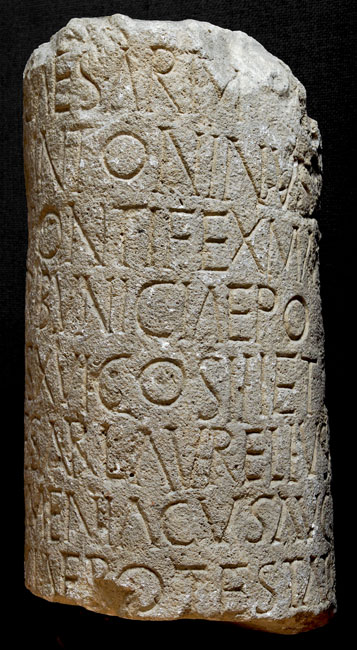 AESAR M
NTONINVS
ONTIFEXM
BVNICIAEPO
XVICOSIIIET
SARLAVRELIVS
MENIACVSM
IAEPOTESTA